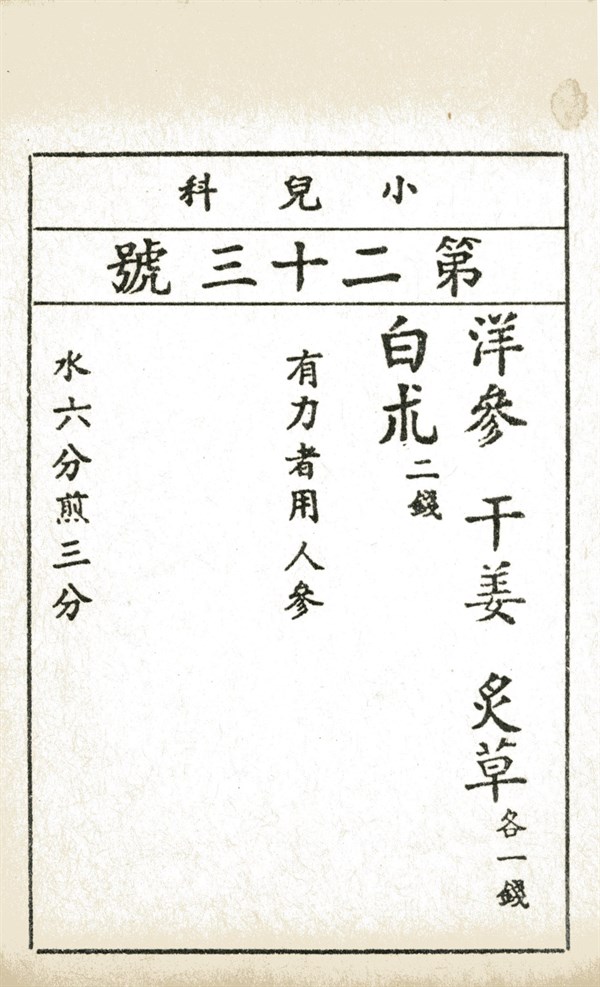 小兒科
第二十三號
洋參 干姜 炙草各一錢
白朮二錢
有力者用人參
水六分煎三分